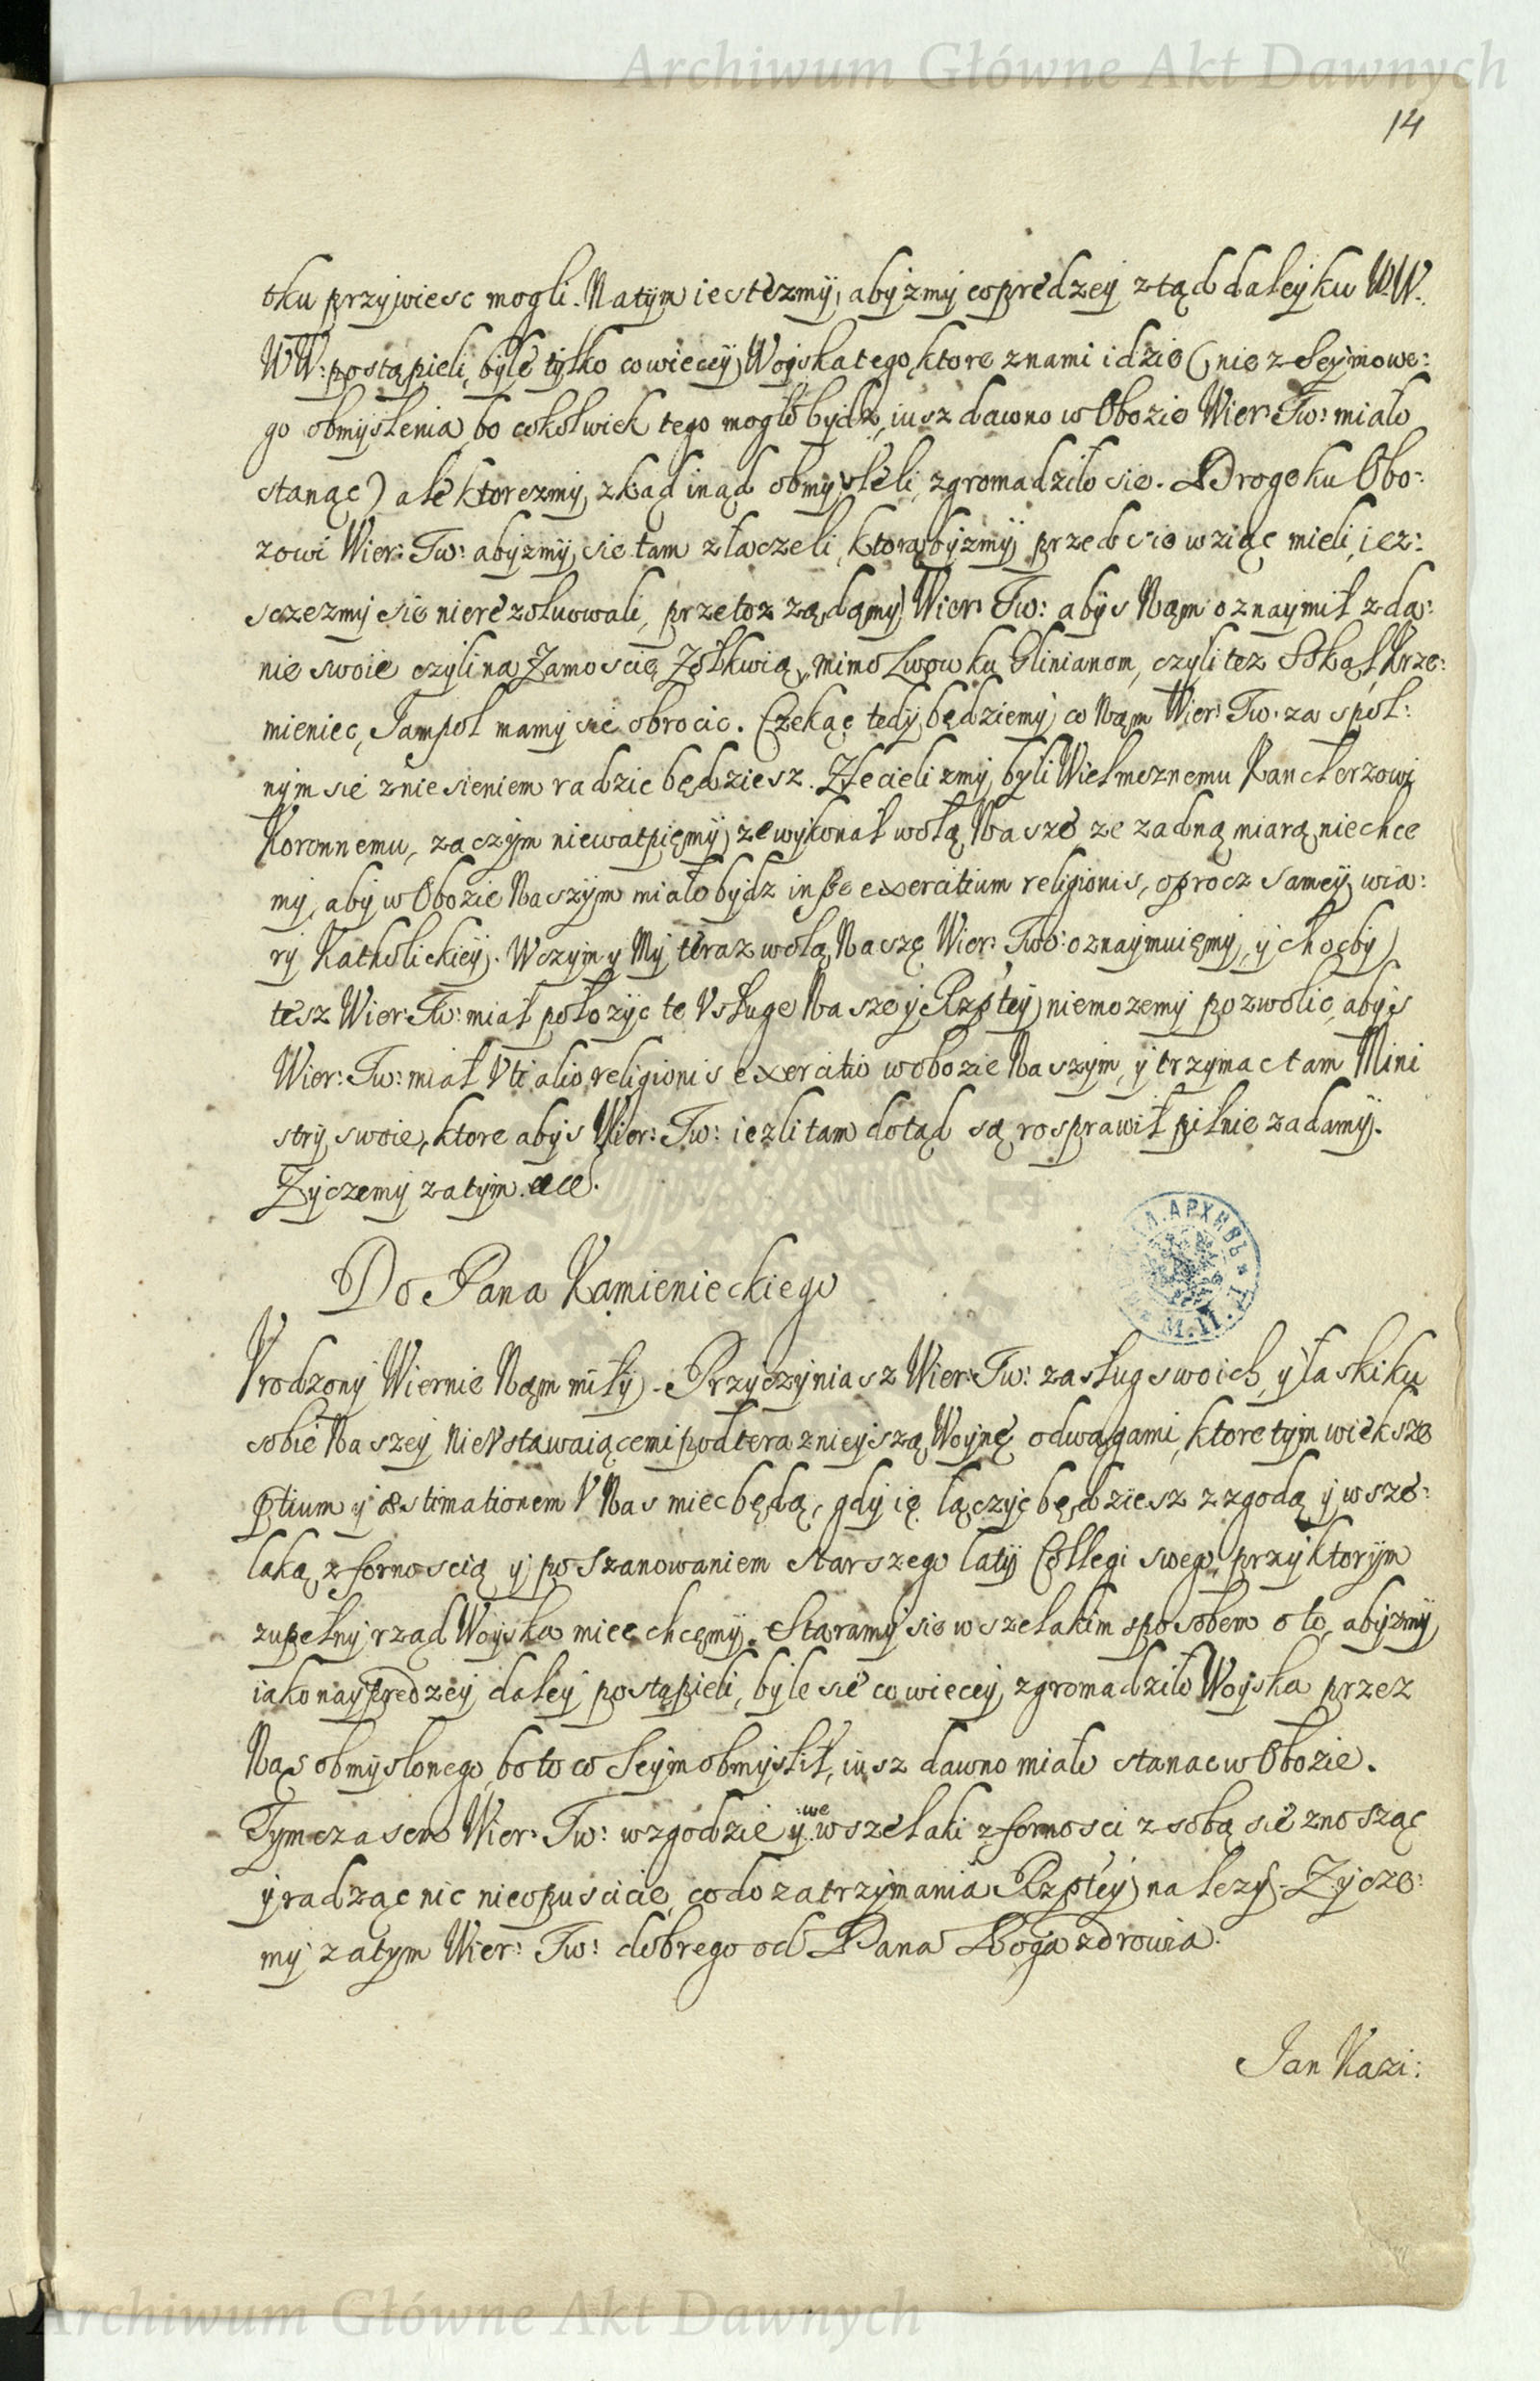 Archiwum Główne Akt Dawnych
14
tku przywiesc mogli. Na tym iestezmy, abyzmy coprędzey ztąd daley ku WW:
WW: postąpieli, byle tylko co wiecey Woyska tego, ktore z nami idzie (nie z Seymowe:
go obmyslenia, bo cokolwiek tego mogło bydz, iusz dawno w Obozie Wier: Tw: miało
stanąc) ale ktorezmy zkąd inąd obmysleli, zgromadziło sie. Droge ku Obo:
zowi Wier: Tw: abyzmy sie tam złączeli, ktorąbyzmy przed sie wziąc mieli, iez:
sczezmy sie nierezoluowali, przetoz ządamy Wier: Tw: abys Nąm oznaymił zda:
nie swoie czyli na Zamoscię, Zołkwią, mimo Lwow ku Glinianom, czyli tez Sokąl, Krze:
mieniec, Jampol mamy sie obrocic. Czekąc tedy będziemy, co Nąm Wier: Tw: za spol:
nym sie zniesieniem radzic będziesz. Zlecieli zmy byli Wielmoznemu Kanclerzowi
Koronnemu, zaczym niewatpięmy, ze wykonał wolą Nasze, ze zadną miarą niechce
my, aby w Obozie Naszym miało bydz insze exercitium religionis, oprocz samey wia:
ry Katholickiey. W czym y My teraz wolą Naszę Wier: Two: oznaymuięmy, y choęby
tesz Wier: Tw: miał połozyc te Vsługe Nasze y Rzptey, niemozemy pozwolic, abys
Wier: Tw: miał Vti alio religionis exercitio w obozie Naszym, y trzymac tam Mini
stry swoie, ktore abys Wier: Tw: iezli tam dotąd są, rosprawił pilnie zadamy.
Zyczemy zatym. etc.
Do Pana Kamienieckiego
Vrodzony Wiernie Nąm miły. Przyczyniasz Wier: Tw: zasług swoich, y łaski ku
sobie Naszey nieVstawaiącemi pod terazniejszą Woynę odwagami, ktore tym wieksze
ptium y æstimationem V Nas miec będą, gdy ię łączyc będziesz z zgodą y wsze:
laką zfornoscią y poszanowaniem starszego laty Collegi swego, przy ktorym
zupełny rząd Woyska miec chcęmy. Staramy sie wszelakim sposobem o to, abyzmy
iako nayprędzey daley postąpieli, byle sie co wiecey zgromadziło Woyska przez
Nąs obmyslonego, bo to co Seym obmyslił, iusz dawno miało stanac w Obozie.
Tymczasem Wier: Tw: w zgodzie y we wszelaki zfornosci z sobą sie znosząc
y radząc nic nieopuscicie, co do zatrzymania Rzptey nalezy. Zycze:
my zatym Wier: Tw: dobrego od Pana Boga zdrowia.
Jan Kazi:
Archiwum Główne Akt Dawnych